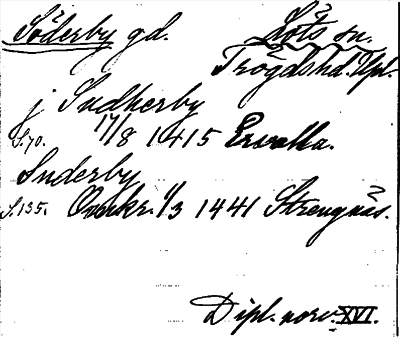 Söderby gd. Löts sn.
Trögds hd. Upl.
j Sudherby
S. 70. 17/8 1415 Ervalla.
Suderby
S. 135. 1/3 1441 Strengnäs.
Dipl. norv. XVI.